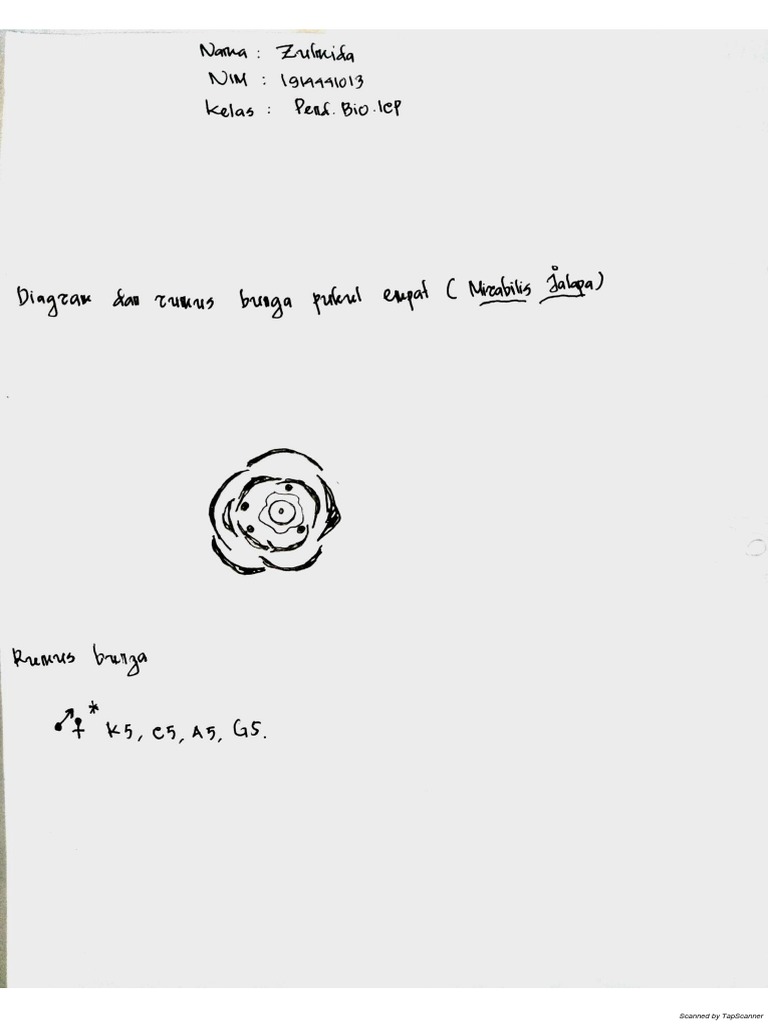 Nama : Zulmida
NIM : 1914441013
Kelas : Pend. Bio. ICP
Diagram dan rumus bunga pukul empat ( Mirabilis Jalapa)
Rumus bunga
⚦⚥ * K5, C5, A5, G5.
Scanned by TapScanner